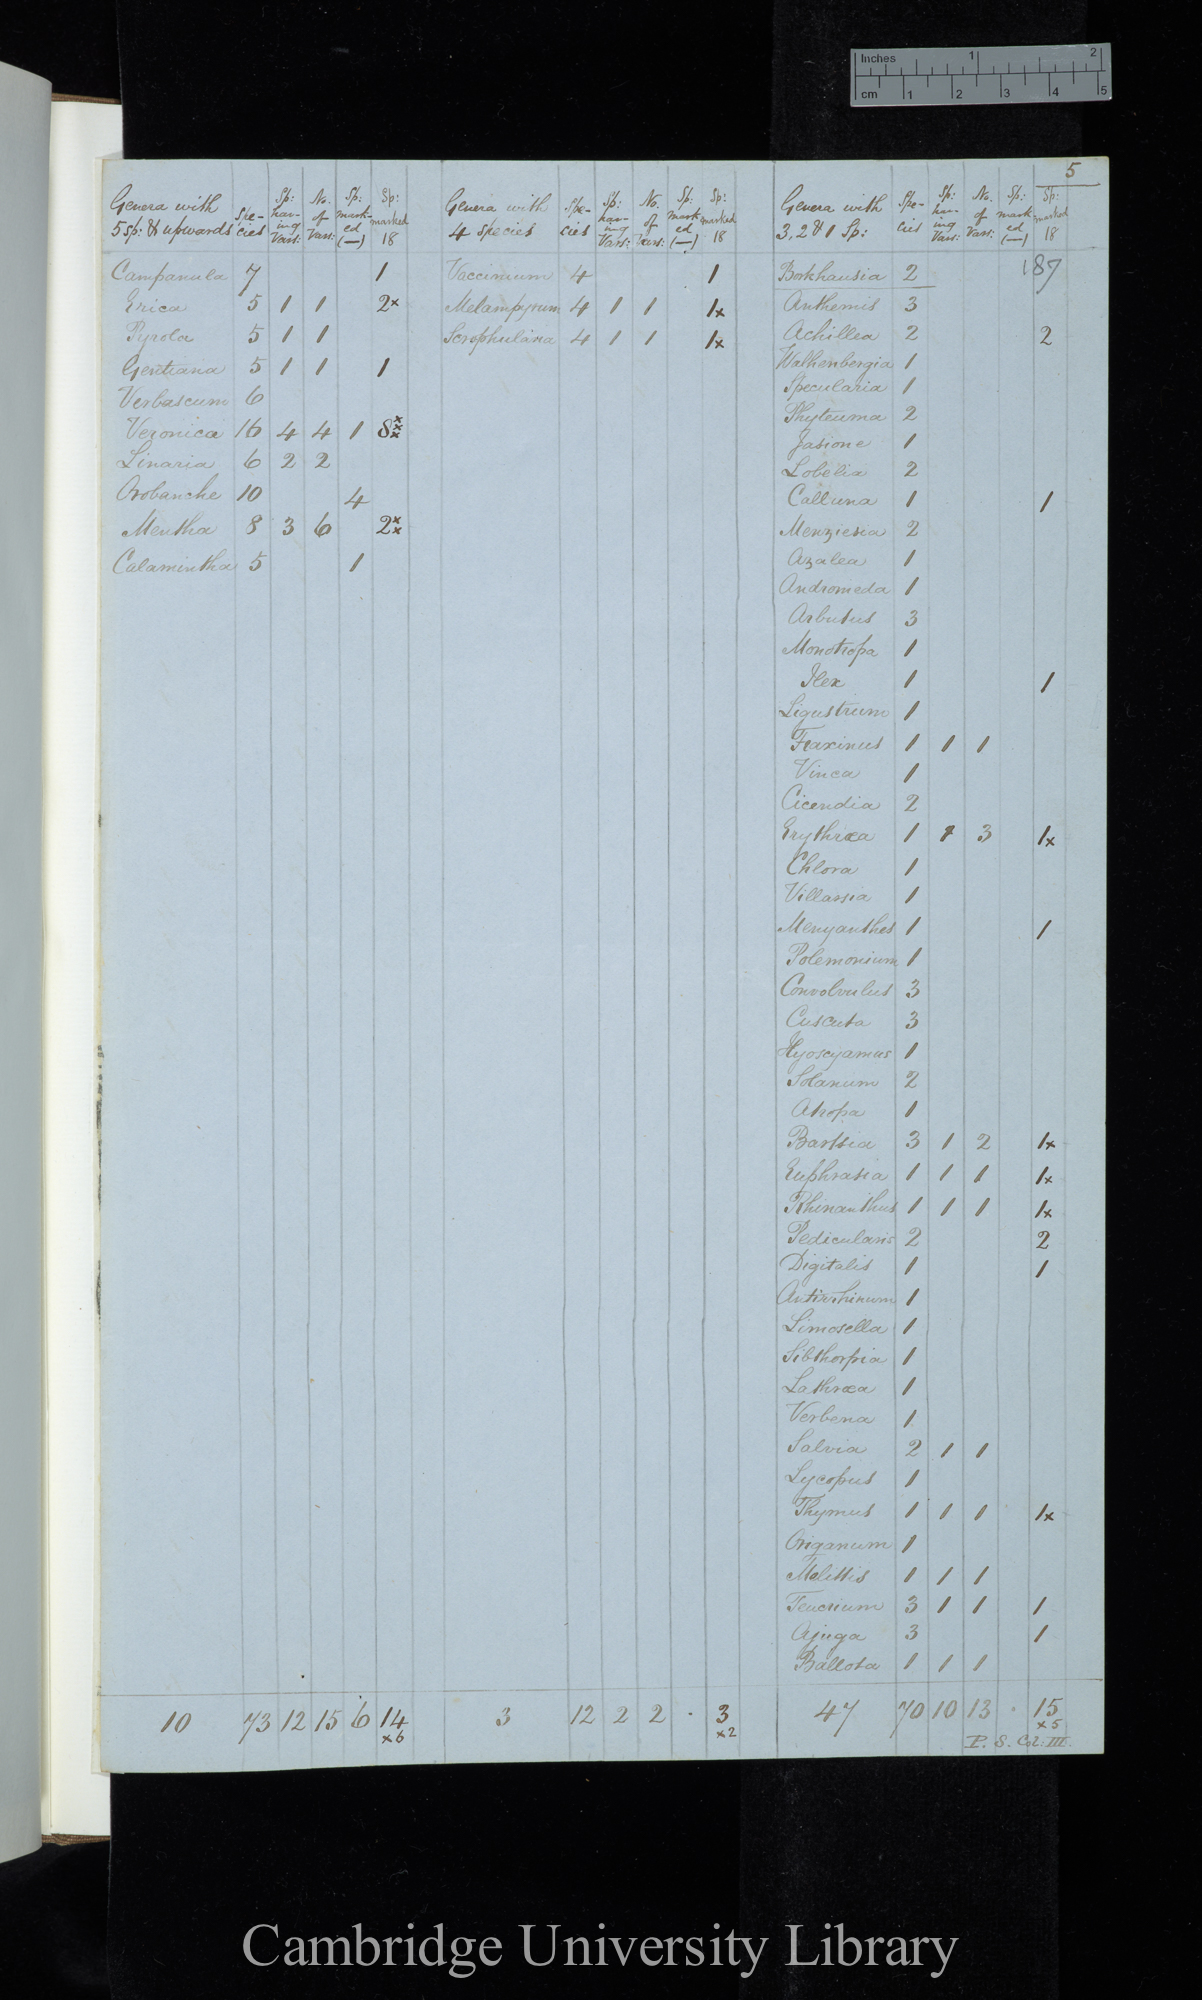 Inches 1 2
cm 1 2 3 4 5
5
Genera with 5 sp: & upwards Spe-cies Sp: hav-ing Vars: No. of Vars: Sp: mark-ed (—) Sp: marked 18
Campanula 7 1
Erica 5 1 1 2x
Pyrola 5 1 1
Gentiana 5 1 1 1
Verbascum 6
Veronica 16 4 4 1 8xxx
Linaria 6 2 2
Orobanche 10 4
Mentha 8 3 6 2xx
Calamintha 5 1
10 73 12 15 6 14 x6
Genera with 4 species Spe-cies Sp: hav-ing Vars: No. of Vars: Sp: mark-ed (—) Sp: marked 18
Vaccinium 4 1
Melampyrum 4 1 1 1x
Scrophularia 4 1 1 1x
3 12 2 2 . 3 x2
Genera with 3, 2 & 1 Sp: Spe-cies Sp: hav-ing Vars: No. of Vars: Sp: mark-ed (—) Sp: marked 18
187
Borkhausia 2
Anthemis 3
Achillea 2 2
Walhenbergia 1
Specularia 1
Phyteuma 2
Jasione 1
Lobelia 2
Calluna 1 1
Menziesia 2
Azalea 1
Andromeda 1
Arbutus 3
Monotropa 1
Ilex 1 1
Ligustrum 1
Fraxinus 1 1 1
Vinca 1
Cicendia 2
Erythræa 1 1 3 1x
Chlora 1
Villarsia 1
Menyanthes 1 1
Polemonium 1
Convolvulus 3
Cuscuta 3
Hyoscyamus 1
Solanum 2
Atropa 1
Bartsia 3 1 2 1x
Euphrasia 1 1 1 1x
Rhinanthus 1 1 1 1x
Pedicularis 2 2
Digitalis 1 1
Antirrhinum 1
Limosella 1
Sibthorpia 1
Lathræa 1
Verbena 1
Salvia 2 1 1
Lycopus 1
Thymus 1 1 1 1x
Origanum 1
Melittis 1 1 1
Teucrium 3 1 1 1
Ajuga 3 1
Ballota 1 1 1
47 70 10 13 . 15 x5
P. S. Col: III.
Cambridge University Library